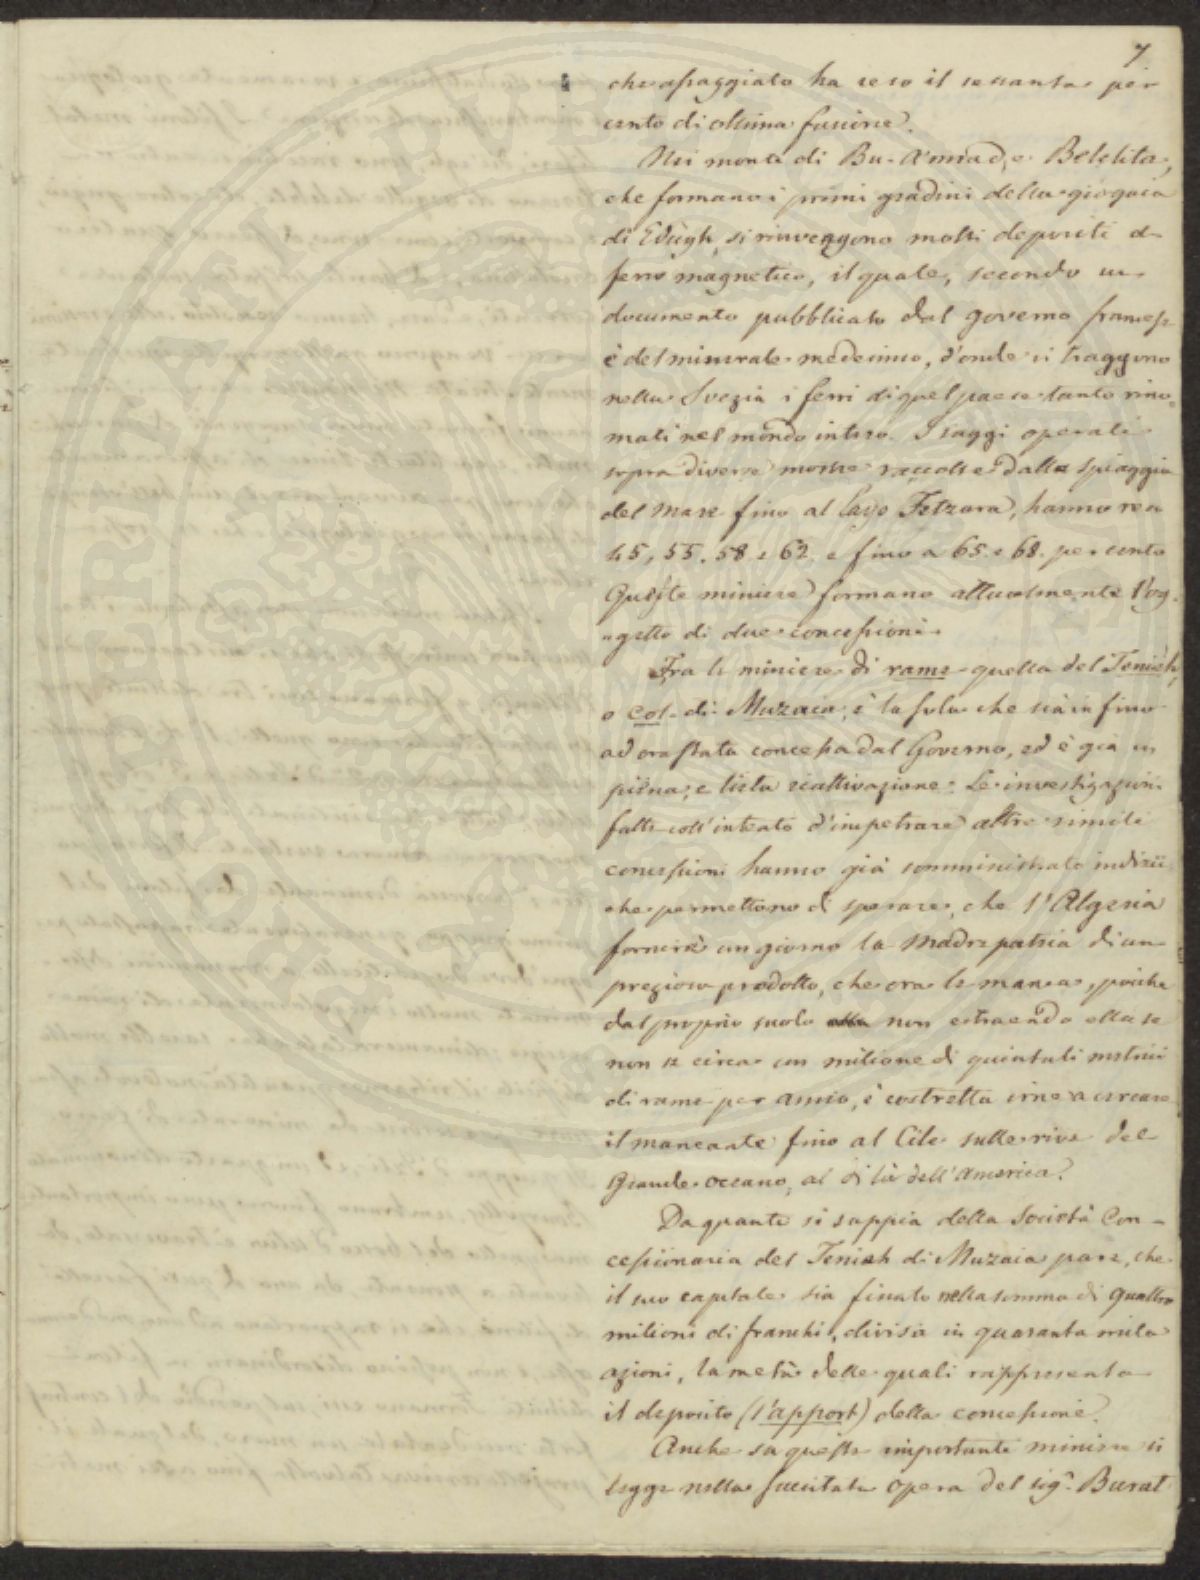 7
che assaggiato ha reso il sessanta per
cento di ottima fusione.
Nei monti di Bu-Amad, e Belelita,
che formano i primi gradini della giogaia
di Edugh, si rinveggono molti depositi di
ferro magnetico, il quale, secondo un
documento pubblicato dal governo francese
è del minerale medesimo, d'onde si traggono
nella Svezia i ferri di quel paese tanto rino-
mati nel mondo intero. I saggi operati
sopra diverse mostre raccolte dalla spiaggia
del mare fino al Lago Fetzara, hanno reso
45, 55, 58 e 62 e fino a 65 e 68. per cento
Queste miniere formano attualmente l'og-
getto di due concessioni.
Fra le miniere di rame quella del Tenieh,
o col di Muzaia, è la sola che sia in fino
ad ora stata concessa dal Governo, ed è già in
piena, e lieta riattivazione. Le investigazioni
fatte coll'intento d'impetrare altre simili
concessioni hanno già somministrato indizii
che permettono di sperare, che l'Algeria
fornirà un giorno la Madre patria di un
prezioso prodotto, che ora le manca, poiche
dal proprio suolo non estraendo ella se
non se circa un milione di quintali metrici
di rame per anno, è costretta irne a cercare
il mancante fino al Cile sulle rive del
Grande oceano, al di là dell'America.
Da quanto si sappia della Società Con-
cessionaria del Tenieh di Muzaia pare, che
il suo capitale sia fissato nella somma di quattro
milioni di franchi, divisa in quaranta mila
azioni, la metà delle quali rappresenta
il deposito (l'apport) della concessione.
Anche su queste importanti miniere si
legge nella succitata opera del sig.r Burat